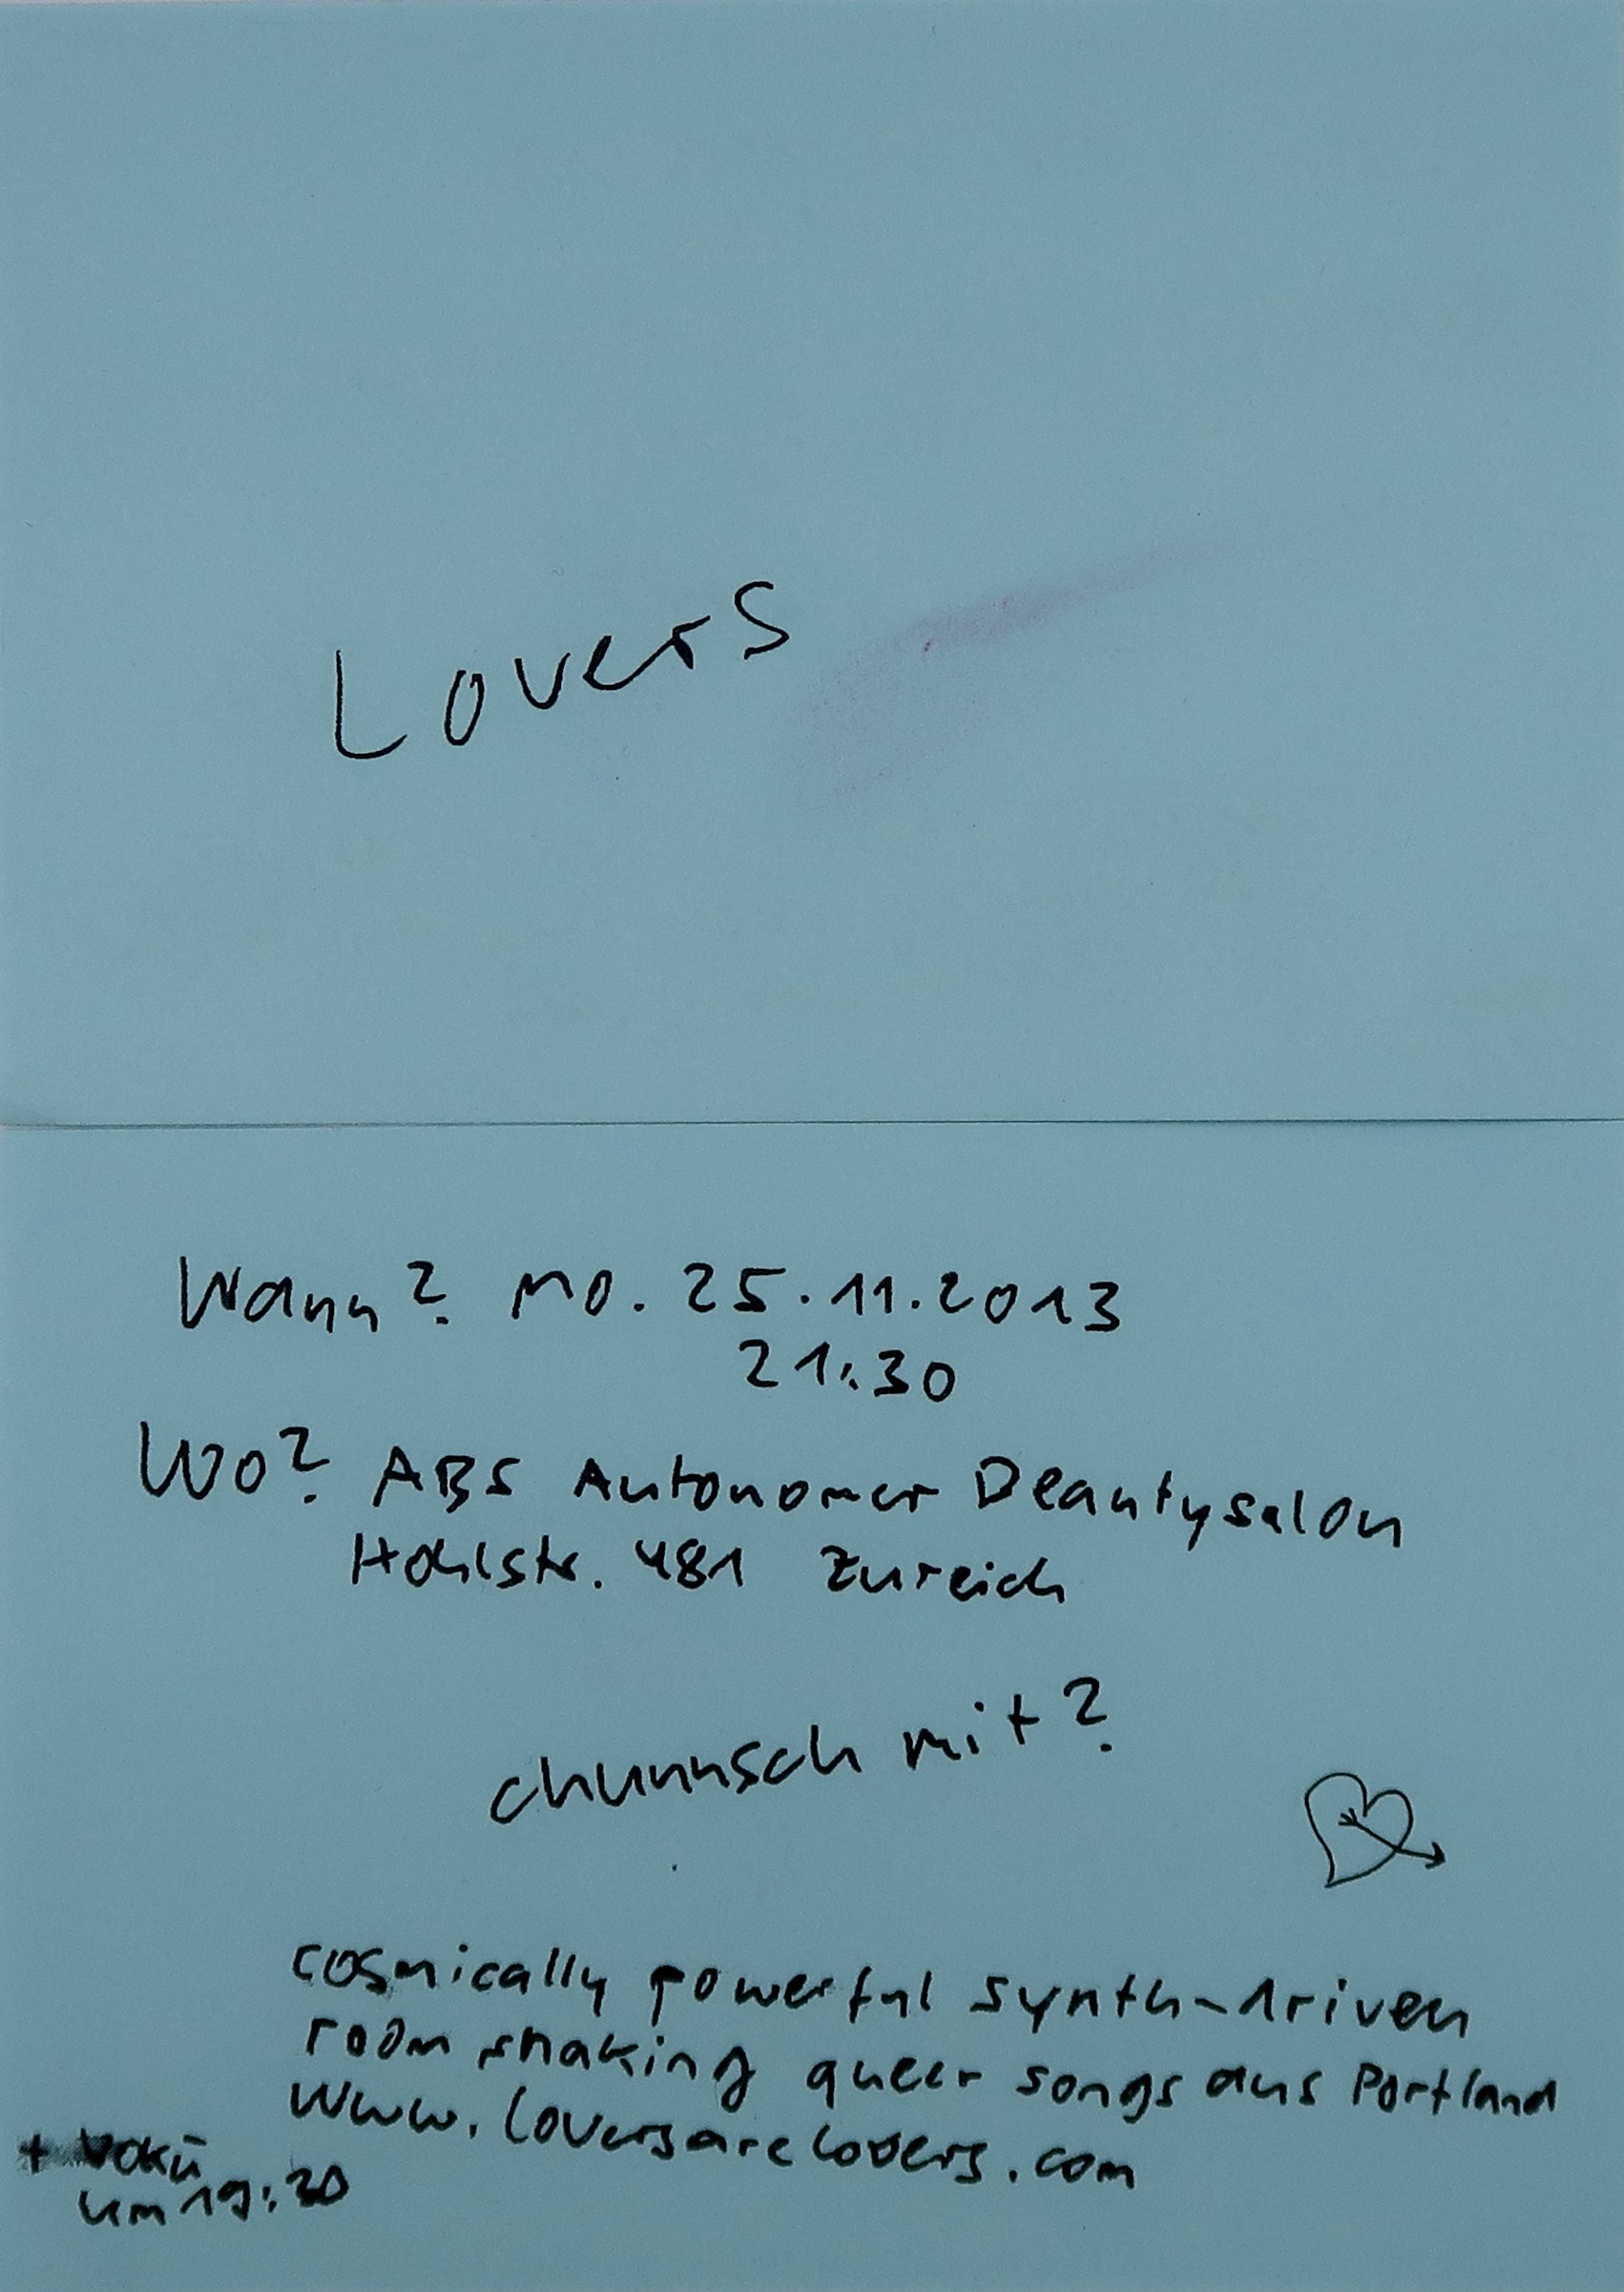 Lovers
Wann? Mo. 25.11.2013
21:30
Wo? ABS Autonomer Beautysalon
Hohlstr. 481 Zureich
chunnsch mit?
cosmically powerful synth-driven
room shaking queer songs aus Portland
www.loversarelovers.com
+ Vokü
um 19:30